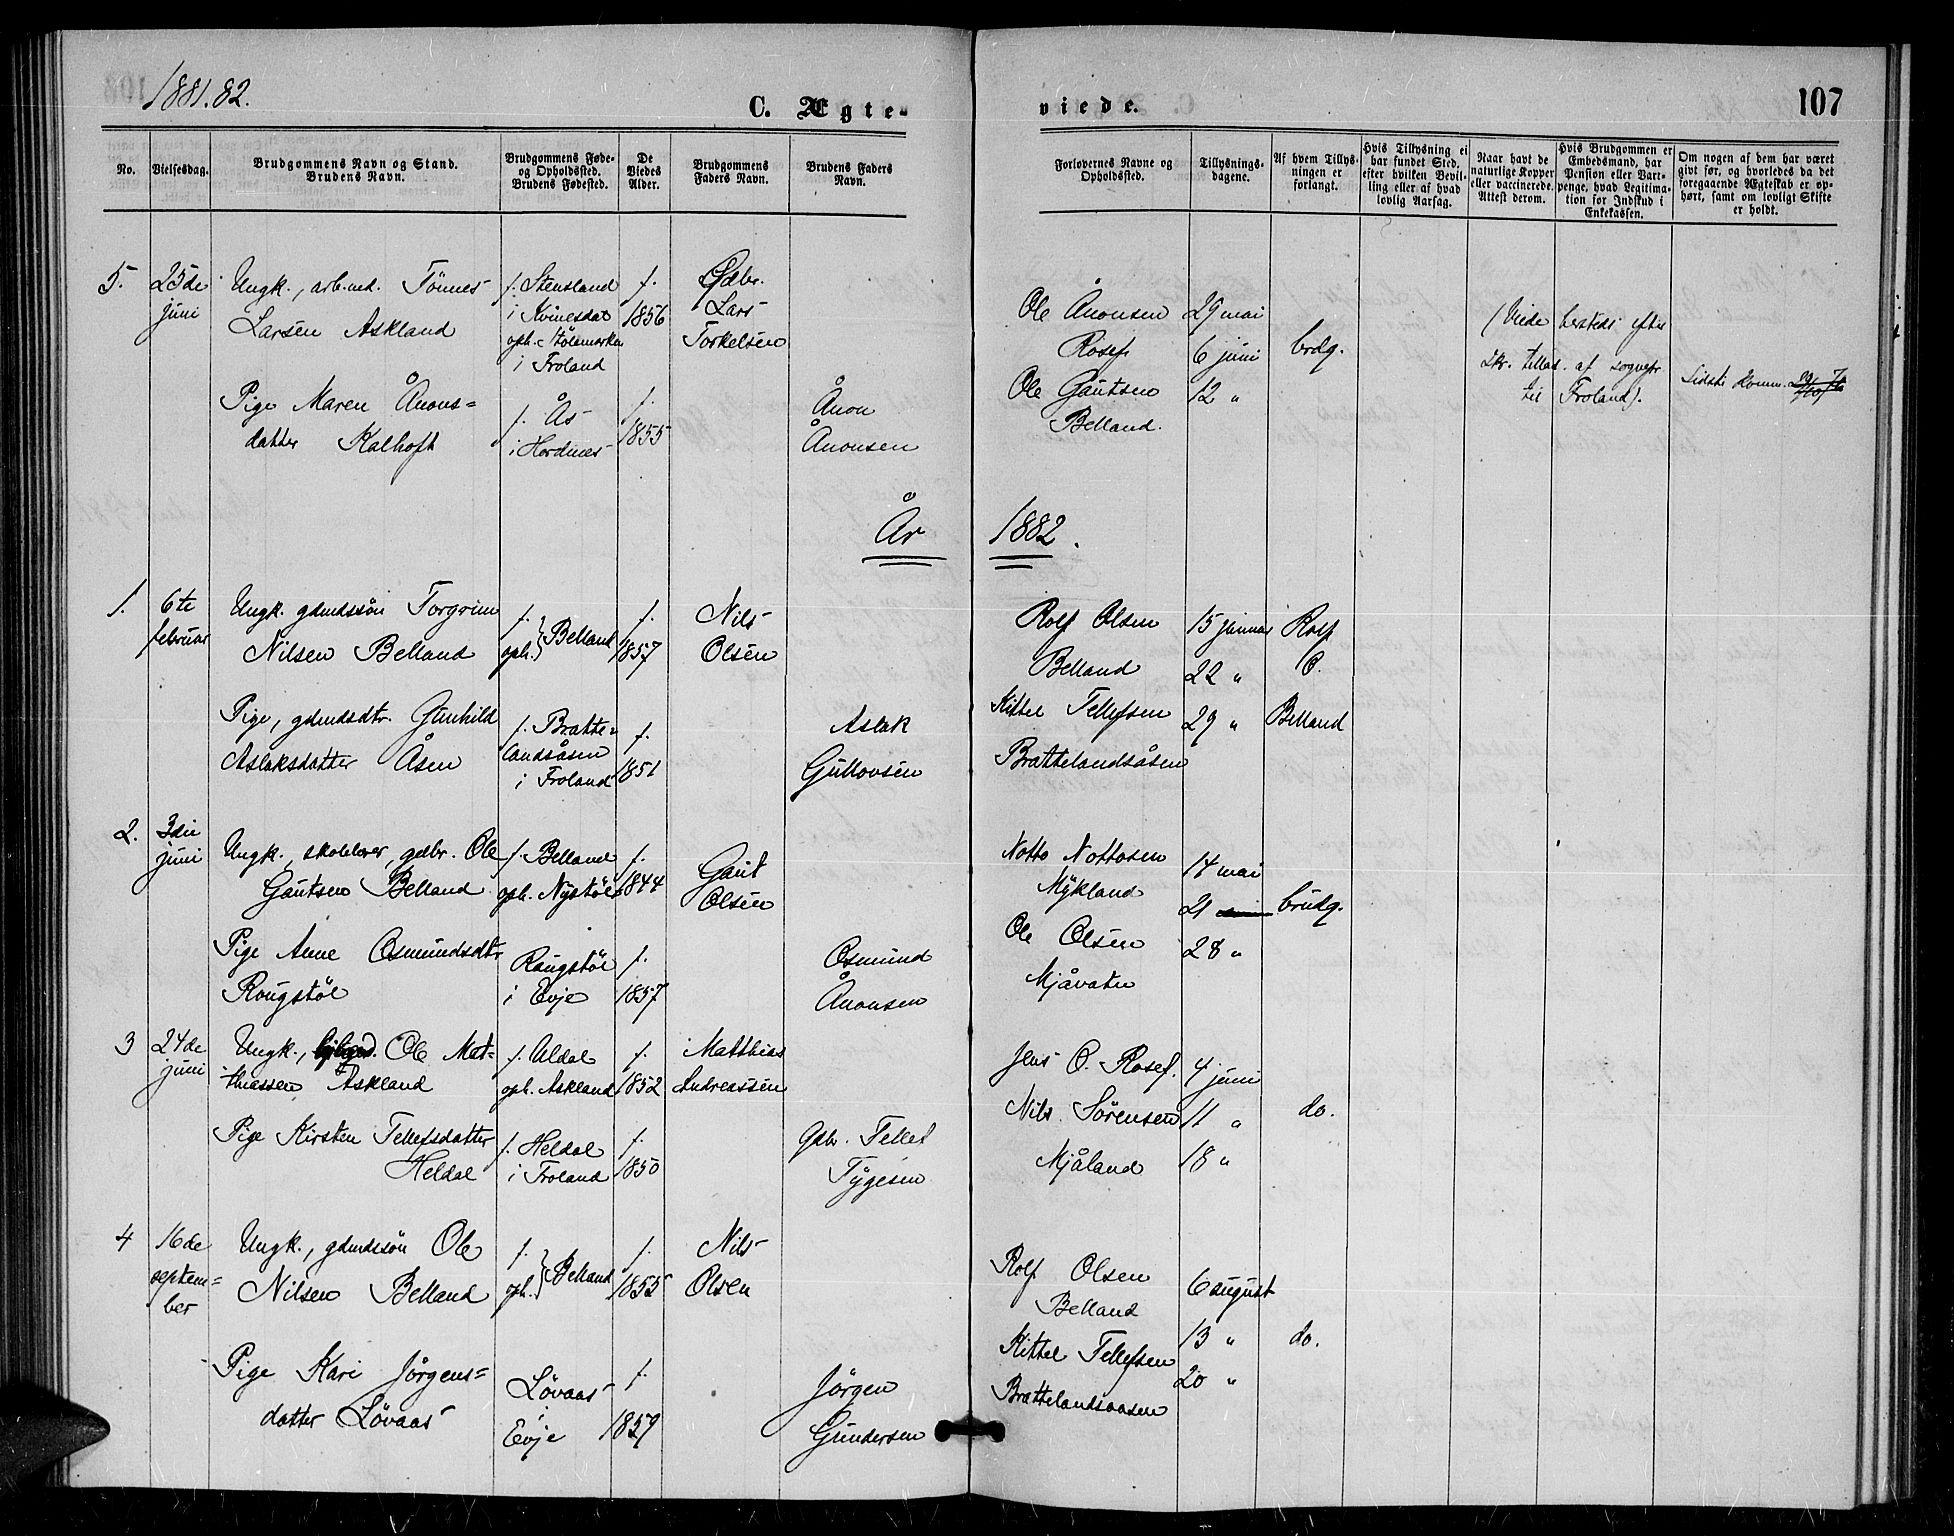 1881.82.
C. Ægte-
viede.
107
No.
Vielsesdag.
Brudgommens Navn og Stand.
Brudens Navn.
Brudgommens Føde-
og Opholdssted.
Brudens Fødested.
De
Viedes
Alder.
Brudgommens
Faders Navn.
Brudens Faders
Navn.
Forlovernes Navne og
Opholdssted.
Tillysnings-
dagene.
Af hvem Tillys-
ningen er
forlangt.
Hvis Tillysning ei
har fundet Sted,
efter hvilken Bevil-
ling eller af hvad
lovlig Aarsag.
Naar havt de
naturlige Kopper
eller vaccinerede.
Attest derom.
Hvis Brudgommen er
Embedsmand, har
Pension eller Vart-
penge, hvad Legitima-
tion for Indskud i
Enkekassen.
Om nogen af dem har været
gift før, og hvorledes da det
foregaaende Ægteskab er op-
hørt, samt om lovligt Skifte
er holdt.
5.
25de
juni
Ungk., arb.md. Tönnes
Larsen Askland
f. Stensland
i Kvinesdal
oph. Stölemarken
i Froland
f.
1856
Gdbr.
Lars
Torkelsen
Pige Maren Ånons=
datter Kalhoft
f. Ås
i Hordnes
f.
1855
Ånon
Ånonsen
Ole Ånonsen
Rosef
Ole Gautsen
Belland.
29 mai
6 juni
12 "
brdg.
(Viede herteds efter
skr. tillad. af sognepr
til Froland).
Sidste Komm.
År 1882.
1.
6te
februar
Ungk. gdmdssön Torgrim
Nilsen Belland
f.
oph. } Belland
f.
1857
Nils
Olsen
Pige, gdmdsdtr. Gunhild
Aslaksdatter Åsen
f. Bratte=
landsåsen
i Froland
f.
1851
Aslak
Gullovsen
Rolf Olsen
Belland
Kittel Tellefsen
Brattelandsåsen
15 januar
22 "
29 "
Rolf
O.
Belland
2.
3die
juni
Ungk., skolelærer, gdbr. Ole
Gautsen Belland
f. Belland
oph. Nystöl
f.
1844
Gaut
Olsen
Pige Anne Osmundsdtr
Rougstöl
Raugstöl
i Evje
f.
1857
Osmund
Ånonsen
Notto Nottosen
Mykland
Ole Olsen
Mjåvatn
14 mai
21
28 "
brudg.
3
24de
juni
Ungk., Ole Mat=
thiassen Askland
f. Uldal
oph. Askland
f.
1852
Matthias
Andreassen
Pige Kirsten Tellefsdatter
Heldal
f. Heldal
i Froland
f.
1850
Gdbr. Tellef
Tygesen
Jens O. Rosef.
Nils Sörensen
Mjåland
4 juni
11 "
18 "
do.
4
16de
septem=
ber
Ungk., gdmdssön Ole
Nilsen Belland
f.
oph. } Belland
f.
1855
Nils
Olsen
Pige Kari Jörgens=
datter Lövaas
Lövaas
i
Evje
f.
1859
Jörgen
Gundersen
Rolf Olsen
Belland
Kittel Tellefsen
Brattelandsaasen
6 august
13 "
20 "
do.